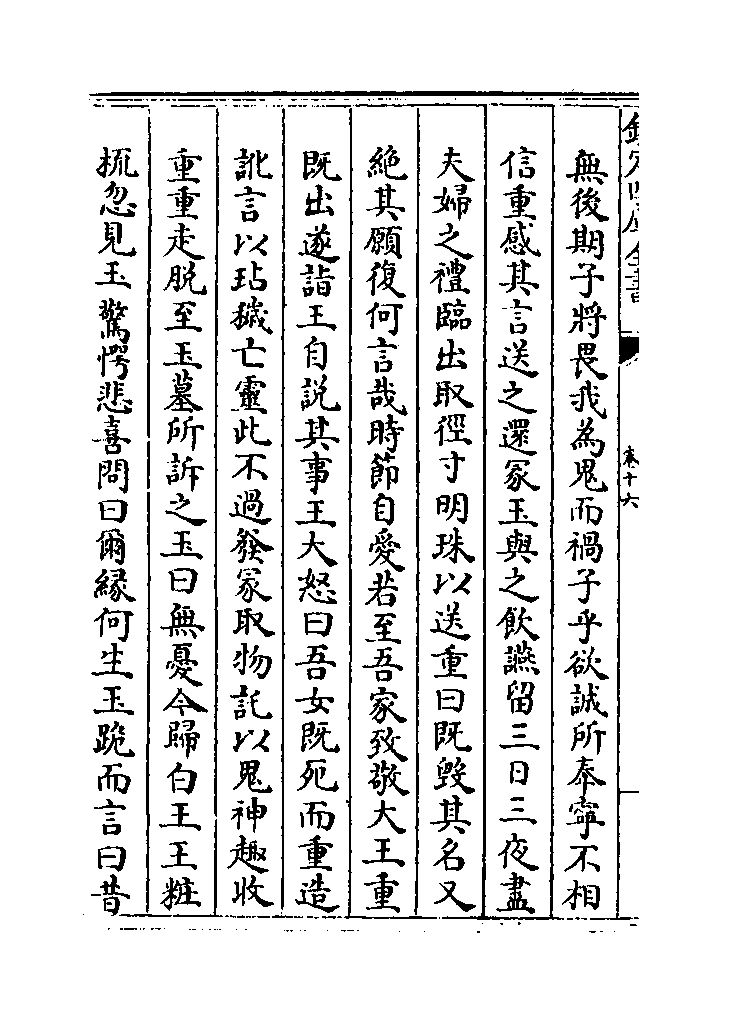 欽定四庫全書
卷十六
無後期子將畏我為鬼而禍子乎欲誠所奉寧不相
信重感其言送之還冢玉與之飲讌留三日三夜盡
夫婦之禮臨出取徑寸明珠以送重曰既毀其名又
絶其願復何言哉時節自愛若至吾家致敬大王重
既出遂詣王自説其事王大怒曰吾女既死而重造
訛言以玷穢亡靈此不過發冢取物託以鬼神趣收
重重走脱至玉墓所訴之玉曰無憂今歸白王王粧
梳忽見玉驚愕悲喜問曰爾縁何生玉跪而言曰昔